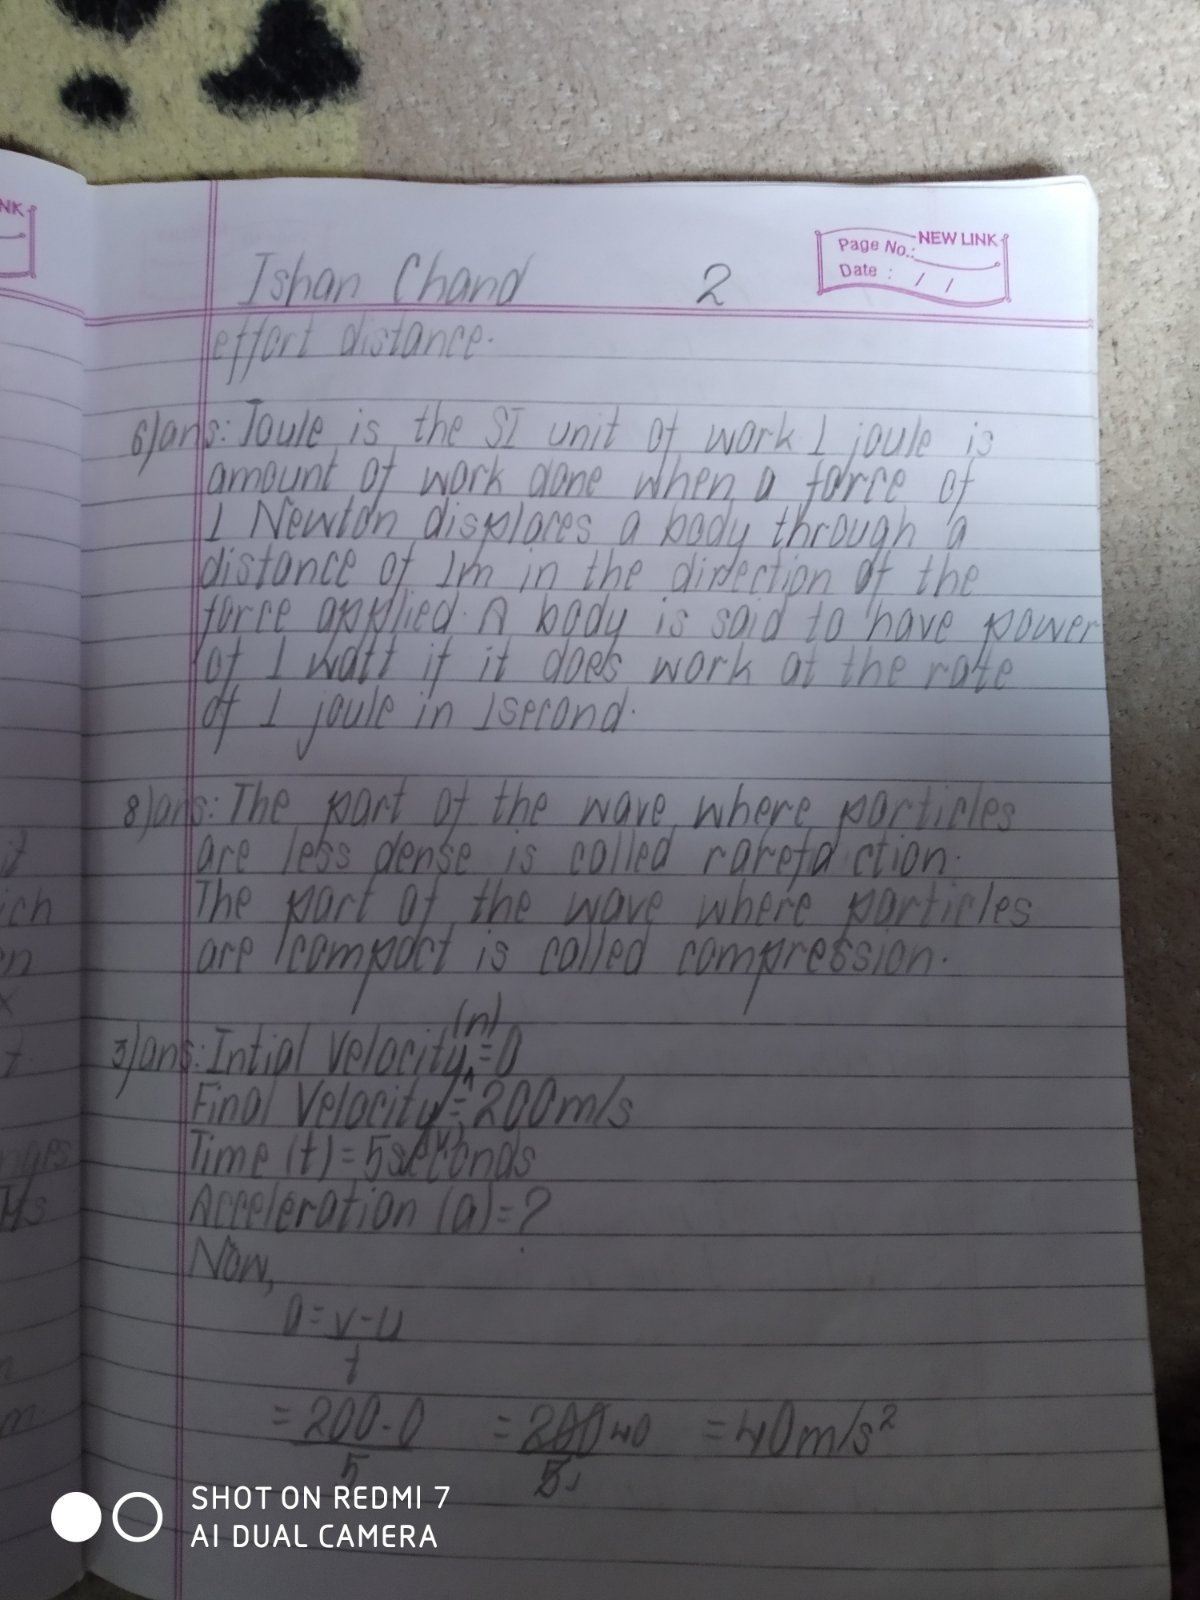 NK
Ishan Chand 2
Page No.: NEW LINK
Date : / /
effort distance.
6) ans: Joule is the SI unit of work 1 joule is
amount of work done when a force of
1 Newton displaces a body through a
distance of 1m in the direction of the
force applied. A body is said to have power
of 1 watt if it does work at the rate
of 1 joule in 1second.
8) ans: The part of the wave where particles
are less dense is called rarefaction.
The part of the wave where particles
are compact is called compression.
3) ans: Intial Velocity (u) = 0
Final Velocity (v) = 200m/s
Time (t) = 5seconds
Acceleration (a) = ?
Now,
a = v-u
t
= 200-0 = 200 40 = 40m/s²
5 5 1
SHOT ON REDMI 7
AI DUAL CAMERA